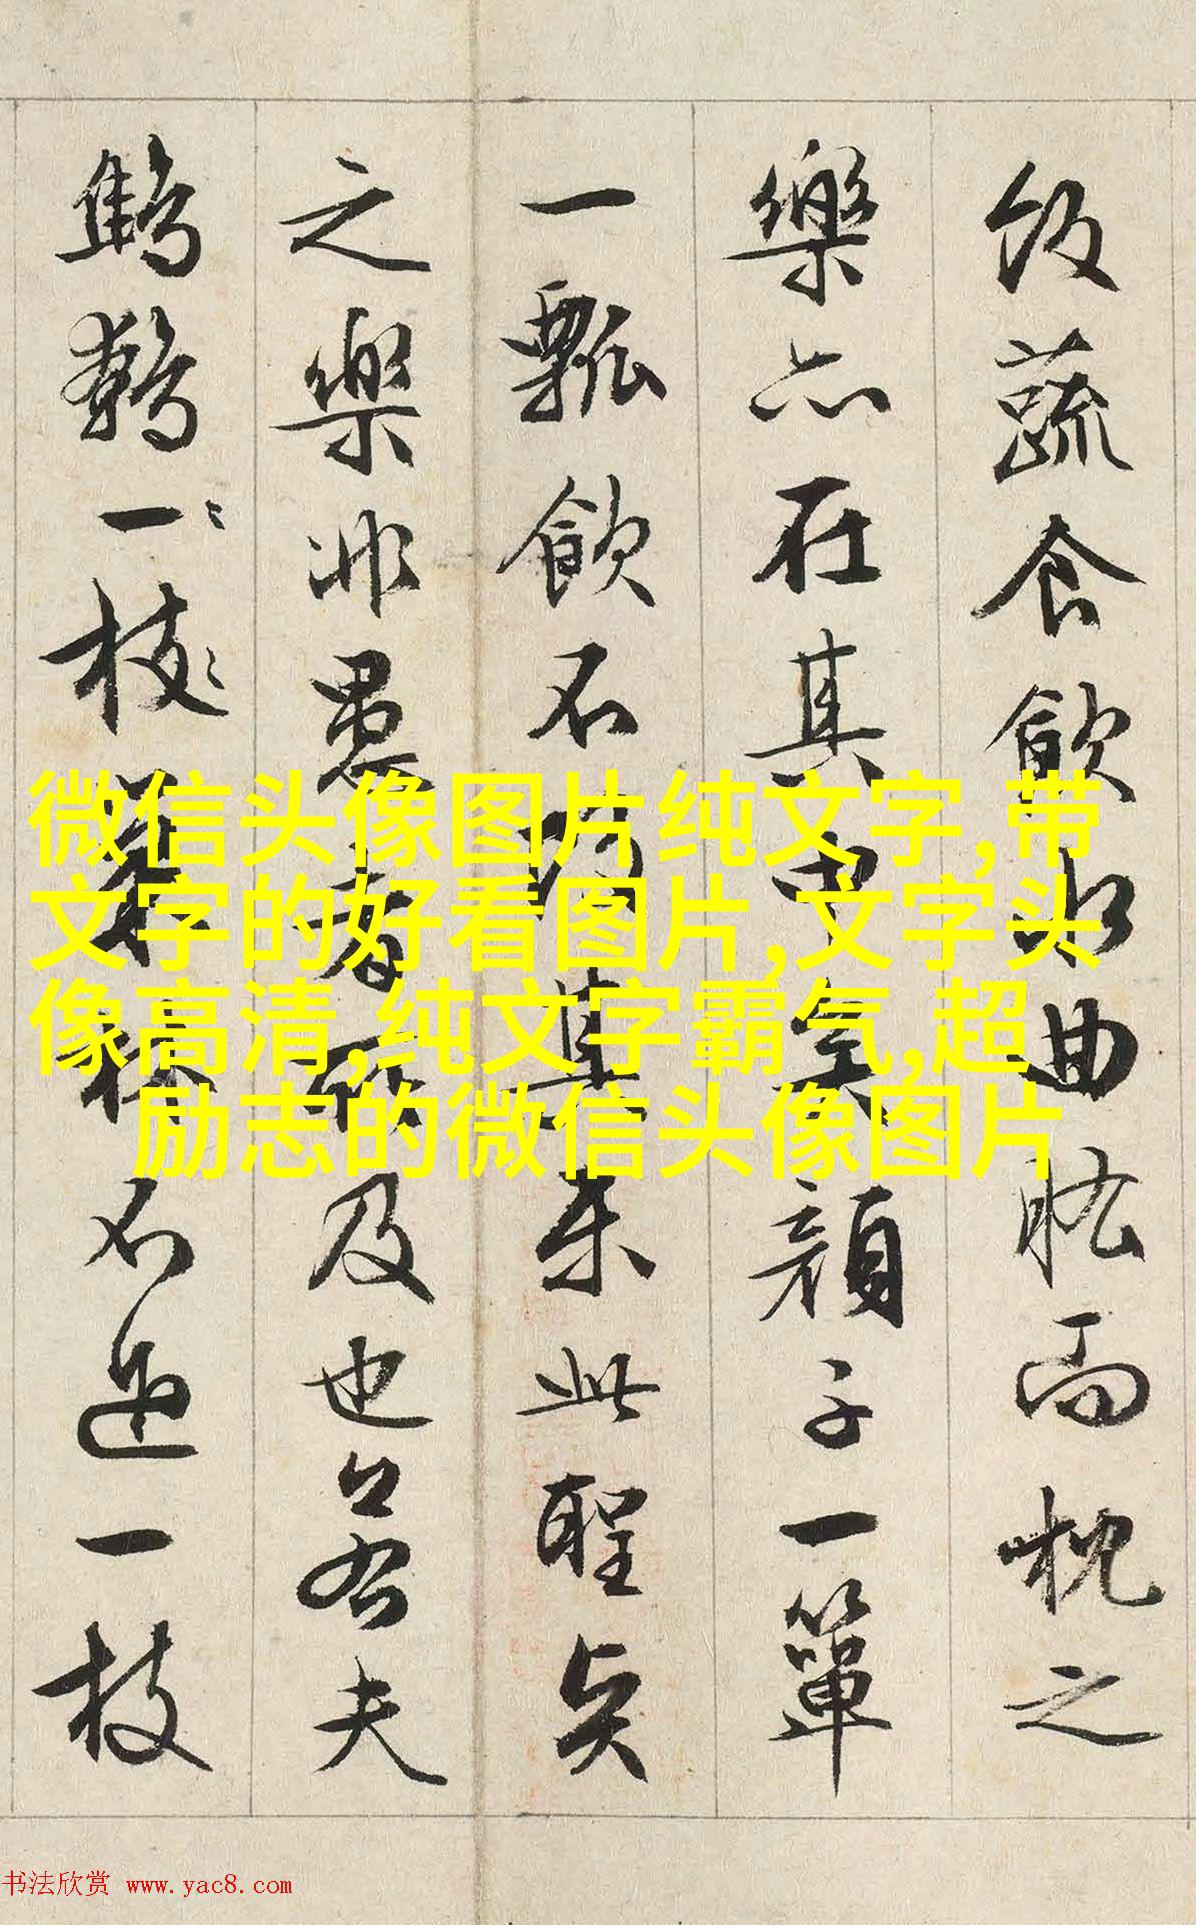 飯蔬食飲水曲肱而枕之
樂亦在其中矣顏子一簞
一瓢飲不改其樂此聖賢
之樂非愚者所及也若夫
鷦鷯一枝巢林不過一枝
微信头像图片纯文字,带
文字的好看图片,文字头
像高清,纯文字霸气,超
励志的微信头像图片
书法欣赏 www.yac8.com